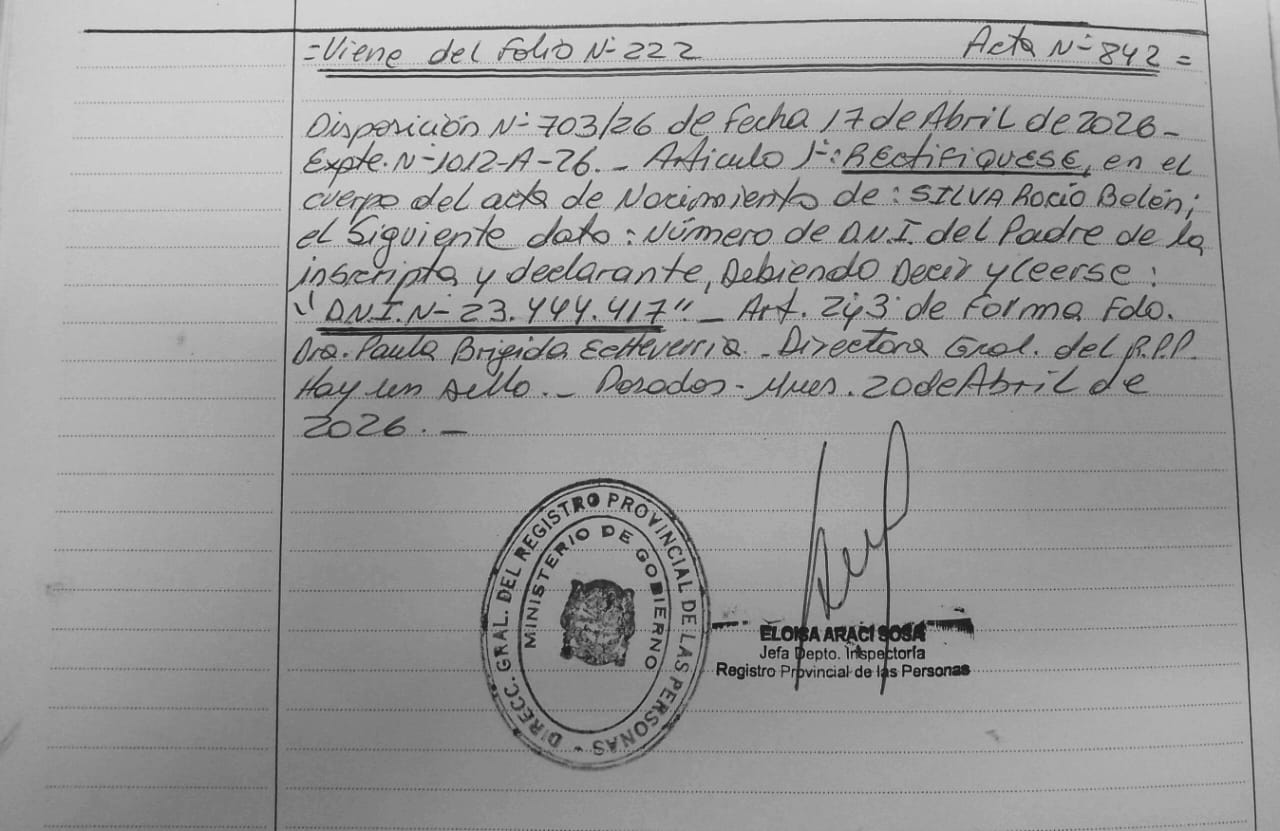 =Viene del Folio Nº 222 Acta Nº 842=
Disposición Nº 703/26 de Fecha 17 de Abril de 2026-
Expte. Nº 1012-A-26._ Articulo 1º: RECTIFIQUESE, en el
cuerpo del acta de Nacimiento de: SILVA Rocío Belén;
el Siguiente dato: Número de D.N.I. del Padre de la
inscripta y declarante, Debiendo Decir y leerse:
"D.N.I. Nº 23.444.417"_ Art. 2y3 de Forma Fdo.
Dra. Paula Brigida Echeverria_ Directora Gral. del R.P.P.
Hay un sello._ Posadas- Mnes. 20 de Abril de
2026._
DIRECC. GRAL. DEL REGISTRO PROVINCIAL DE LAS PERSONAS -
MINISTERIO DE GOBIERNO
ELOISA ARACI SOSA
Jefa Depto. Inspectoría
Registro Provincial de las Personas